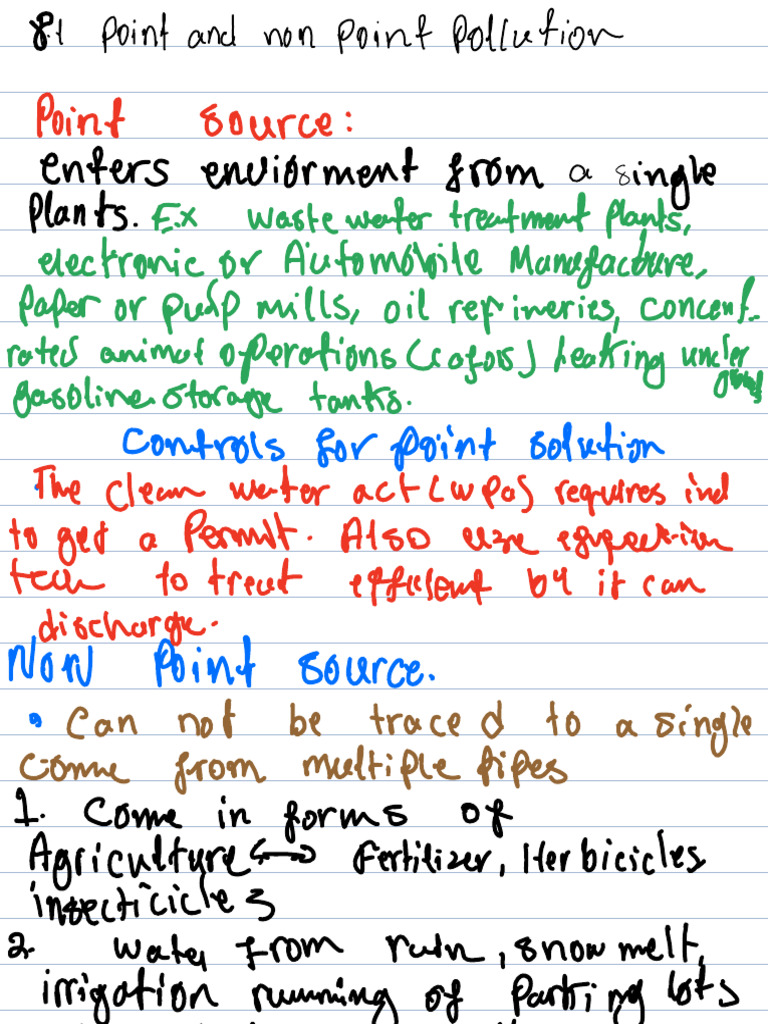 8.1 Point and non Point Pollution
Point source:
enters enviorment from a single
Plants. Ex waste water treatment plants,
electronic or Automobile Manufacture,
Paper or pulp mills, oil refineries, concent-
rated animal operations (cafos) leaking under
ground
gasoline storage tanks.
Controls for point solution
The clean water act (wpa) requires ind
to get a Permit. Also use
tech to treat efflsent by it can
discharge.
Non Point source.
• Can not be traced to a single
come from multiple pipes
1. Come in forms of
Agriculture ↔ Fertilizer, Herbicicles
insecticicles
2. water from rain, snow melt,
irrigation running of parking lots